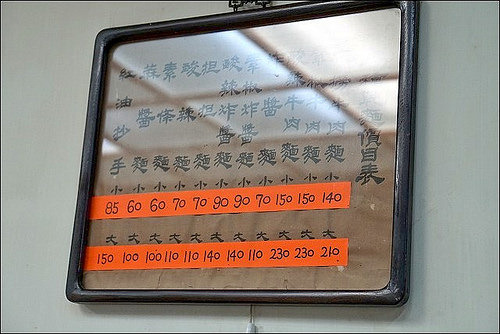 麵價目表
牛肉麵
牛肉麵
辣牛肉麵
炸醬麵
椒炸醬麵
酸辣炸醬麵
担担麵
酸辣麵
素條麵
蔴醬麵
紅油抄手
小 小 小 小 小 小 小 小 小 小 小
85 60 60 70 70 90 90 70 150 150 140
大 大 大 大 大 大 大 大 大 大 大
150 100 100 110 110 140 140 110 230 230 210